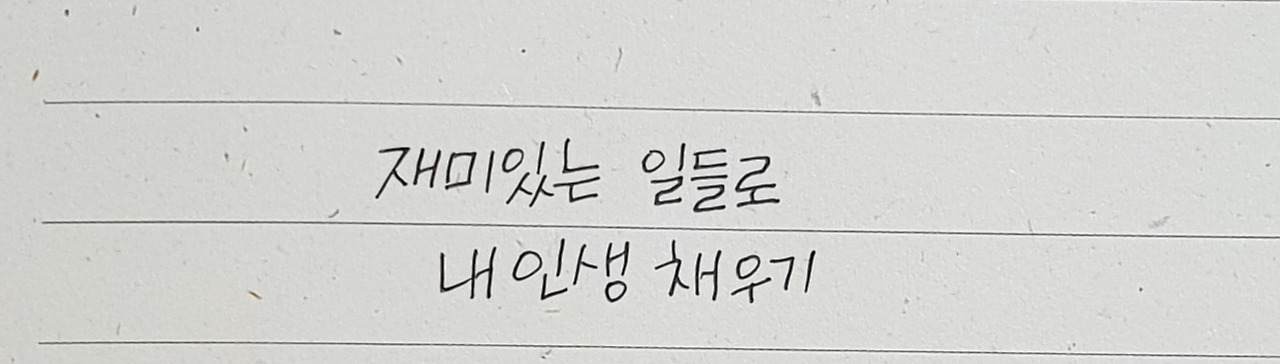 재미있는 일들로
내 인생 채우기